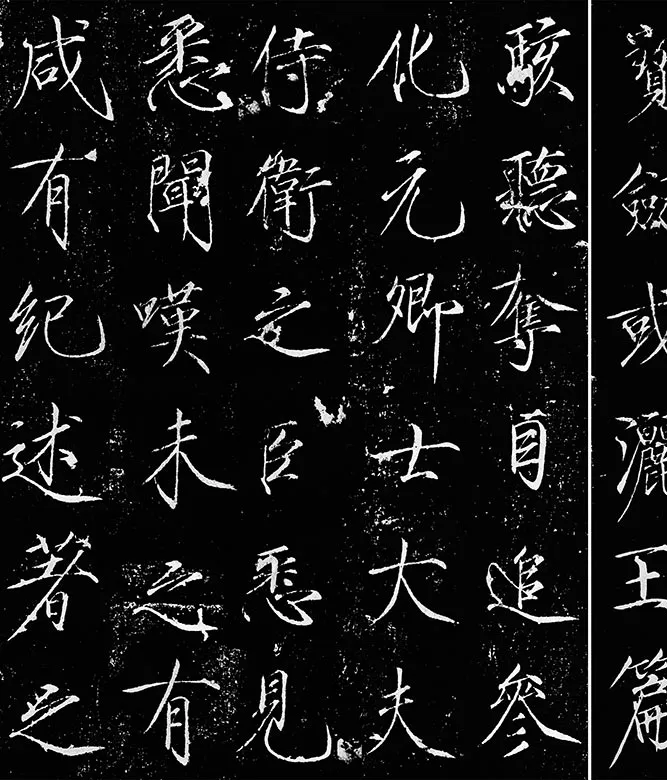 寶劔或灑王篇
駭聽奪自追參
化元卿士大夫
侍衛之臣悉見
悉聞嘆未之有
咸有紀述著之